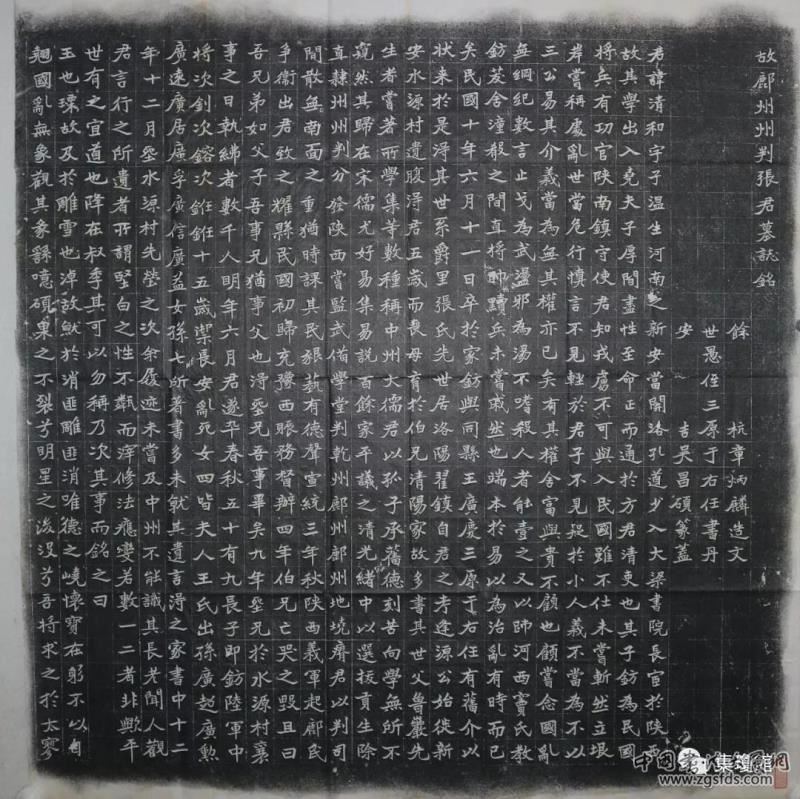 故鄜州州判張君墓誌銘
餘杭章炳麟造文
世愚侄三原于右任書丹
安吉吳昌碩篆蓋
君諱清和字子温生河南之新安當關洛孔道少入大梁書院長官於陝西
故其學出入堯夫子厚間盡性至命正而通於方君清吏也其子鈁為民國
將兵有功官陝南鎮守使君知戎慮不可與入民國雖不仕未嘗斬然立垠
岸嘗稱處亂世當危行慎言不見輕於君子不見疑於小人義不當為不以
三公易其介義當為無其權亦已矣有其權舍富與貴不顧也顧嘗念國亂
無綱紀數言止戈為武盪邪為湯不嗜殺人者能壹之又以師河西竇氏教
鈁茇舍潼殽之間直將帥黷兵未嘗戚然也端本於易以為治亂有時而已
矣民國十年六月十一日卒於家鈁與同縣王廣慶三原于右任有舊介以
狀来於是淂其世系爵里張氏先世居洛陽翟鎮自君之考逢源公始徙新
安水源村遺腹淂君五歲而喪母育於伯兄清陽家故多書其世父魯巖先
生者嘗著所學集等數種稱中州大儒君以孤子承舊德刻苦向學無所不
窺然其歸在宋儒尤好易集易說百餘家平議之清光緒中以選拔貢生除
直隸州州判分發陝西嘗監武備學堂判乾州鄜州鄜州地境瘠君以判司
閒散無南面之重猶時課其民藝有德聲宣統三年秋陝西義軍起鄜民
爭衛出君致之耀縣民國初歸充豫西賑務督辦四年伯兄亡哭之毀且曰
吾兄弟如父子吾事兄猶事父也淂葬兄吾事畢矣九年葬兄於水源村襄
事之日執紼者數千人明年六月君遂卒春秋五十有九長子即鈁陸軍中
將次釗次鎔次銋銋十五歲禦長安亂死女四皆夫人王氏出孫廣超廣勲
廣遠廣居廣孚廣信廣益女孫七所著書多未就其遺言淂之家書中十二
年十二月葬水源村先塋之次余屐迹未嘗及中州不能識其長老聞人觀
君言行之所遺者所謂堅白之性不而滓修法應變若數一二者非歟平
世有之宜道也降在叔季其可以勿稱乃次其事而銘之曰
玉也瑈故及於雕雪也淖故於消匪雕匪消唯德之嶢懷寶在躬不以匄
翹國亂無象觀其繇噫碩果之不裂兮明星之没兮吾將求之於太寥
集瓊館
www.zgsfds.com